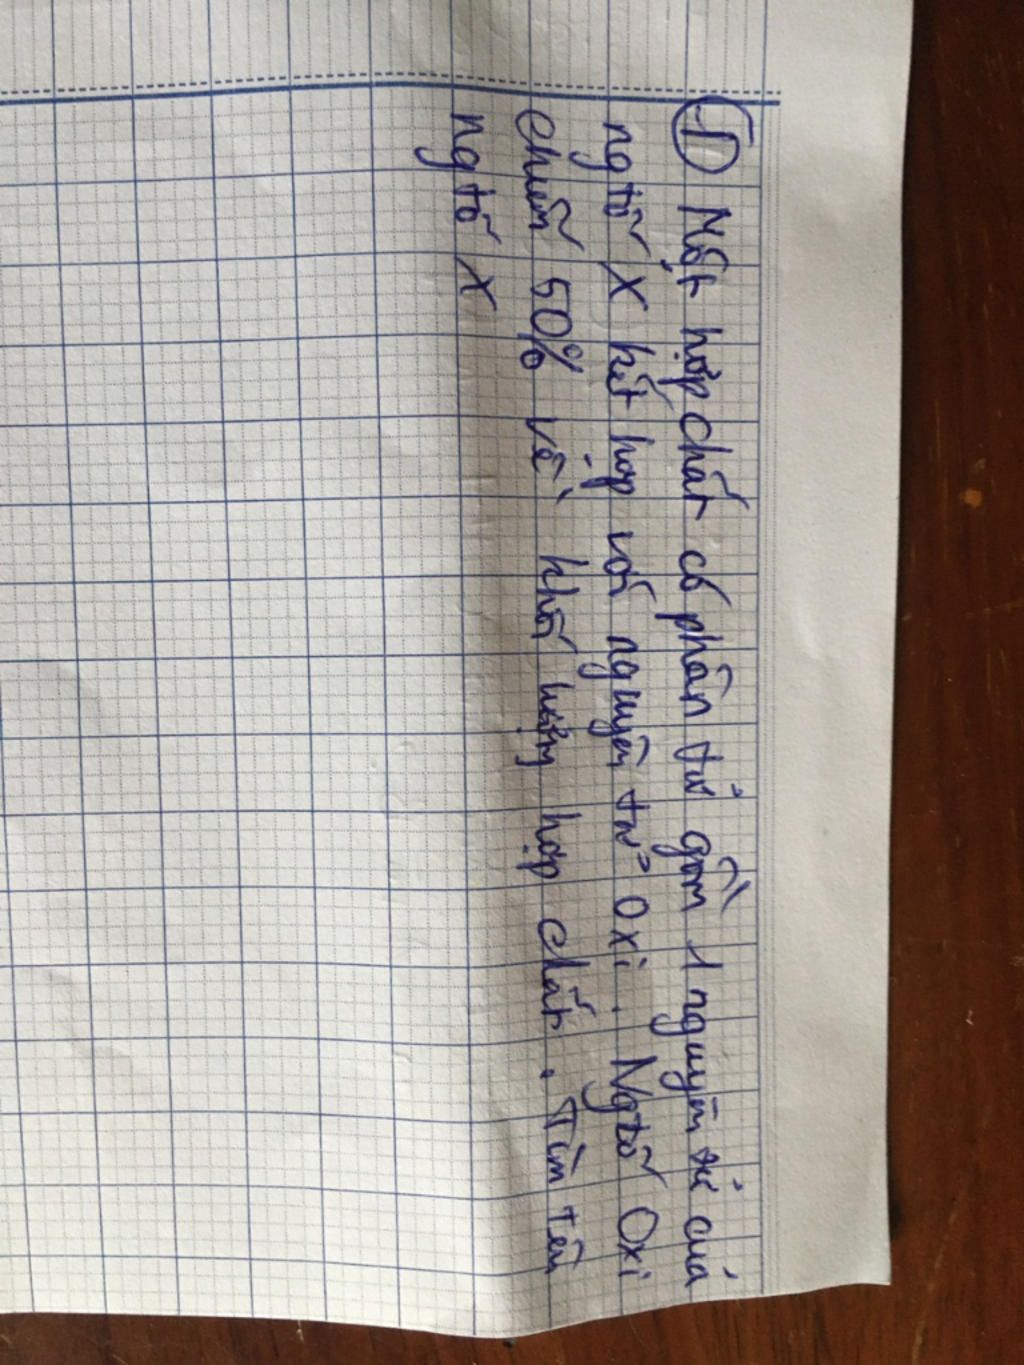 ① Một hợp chất có phân tử gồm 1 nguyên tử của
ngtố X kết hợp với nguyên tử Oxi. Ngtố Oxi
chiếm 50% về khối lượng hợp chất. Tìm tên
ngtố X